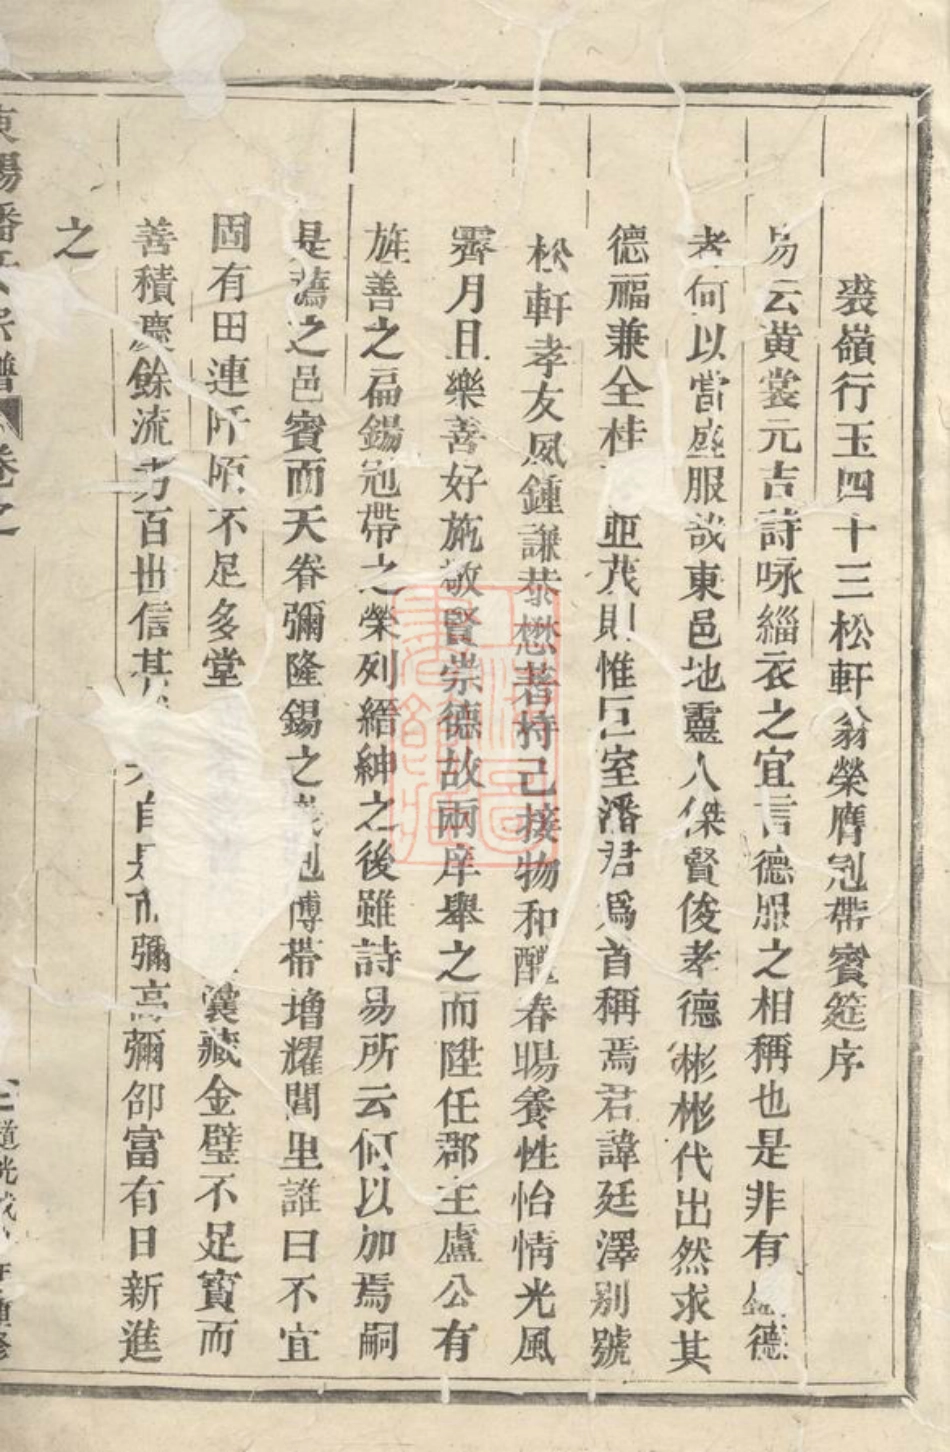 裘嶺行玉四十三松軒翁榮膺冠帶賓筵序
易云黄裳元吉詩咏緇衣之宜言德服之相稱也是非有德
者何以當盛服哉東邑地靈人傑賢俊孝德彬彬代出然求其
德福兼全桂亜茂則惟巨室潘君爲首稱焉君諱廷澤别號
松軒孝友夙鍾謙恭懋著持己接物和醴春暘養性怡情光風
霽月且樂善好施敬賢崇德故兩庠舉之而陞任郡主盧公有
旌善之扁錫冠帶之榮列縉紳之後雖詩易所云何以加焉嗣
是薦之邑賓而天眷彌隆錫之冠博帯增耀閭里誰曰不宜
固有田連阡陌不足多堂囊藏金璧不足寳而
善積慶餘流芳百世信其自是而彌高彌卲富有日新進
之
東陽潘氏宗譜 卷之
道光戊年重修